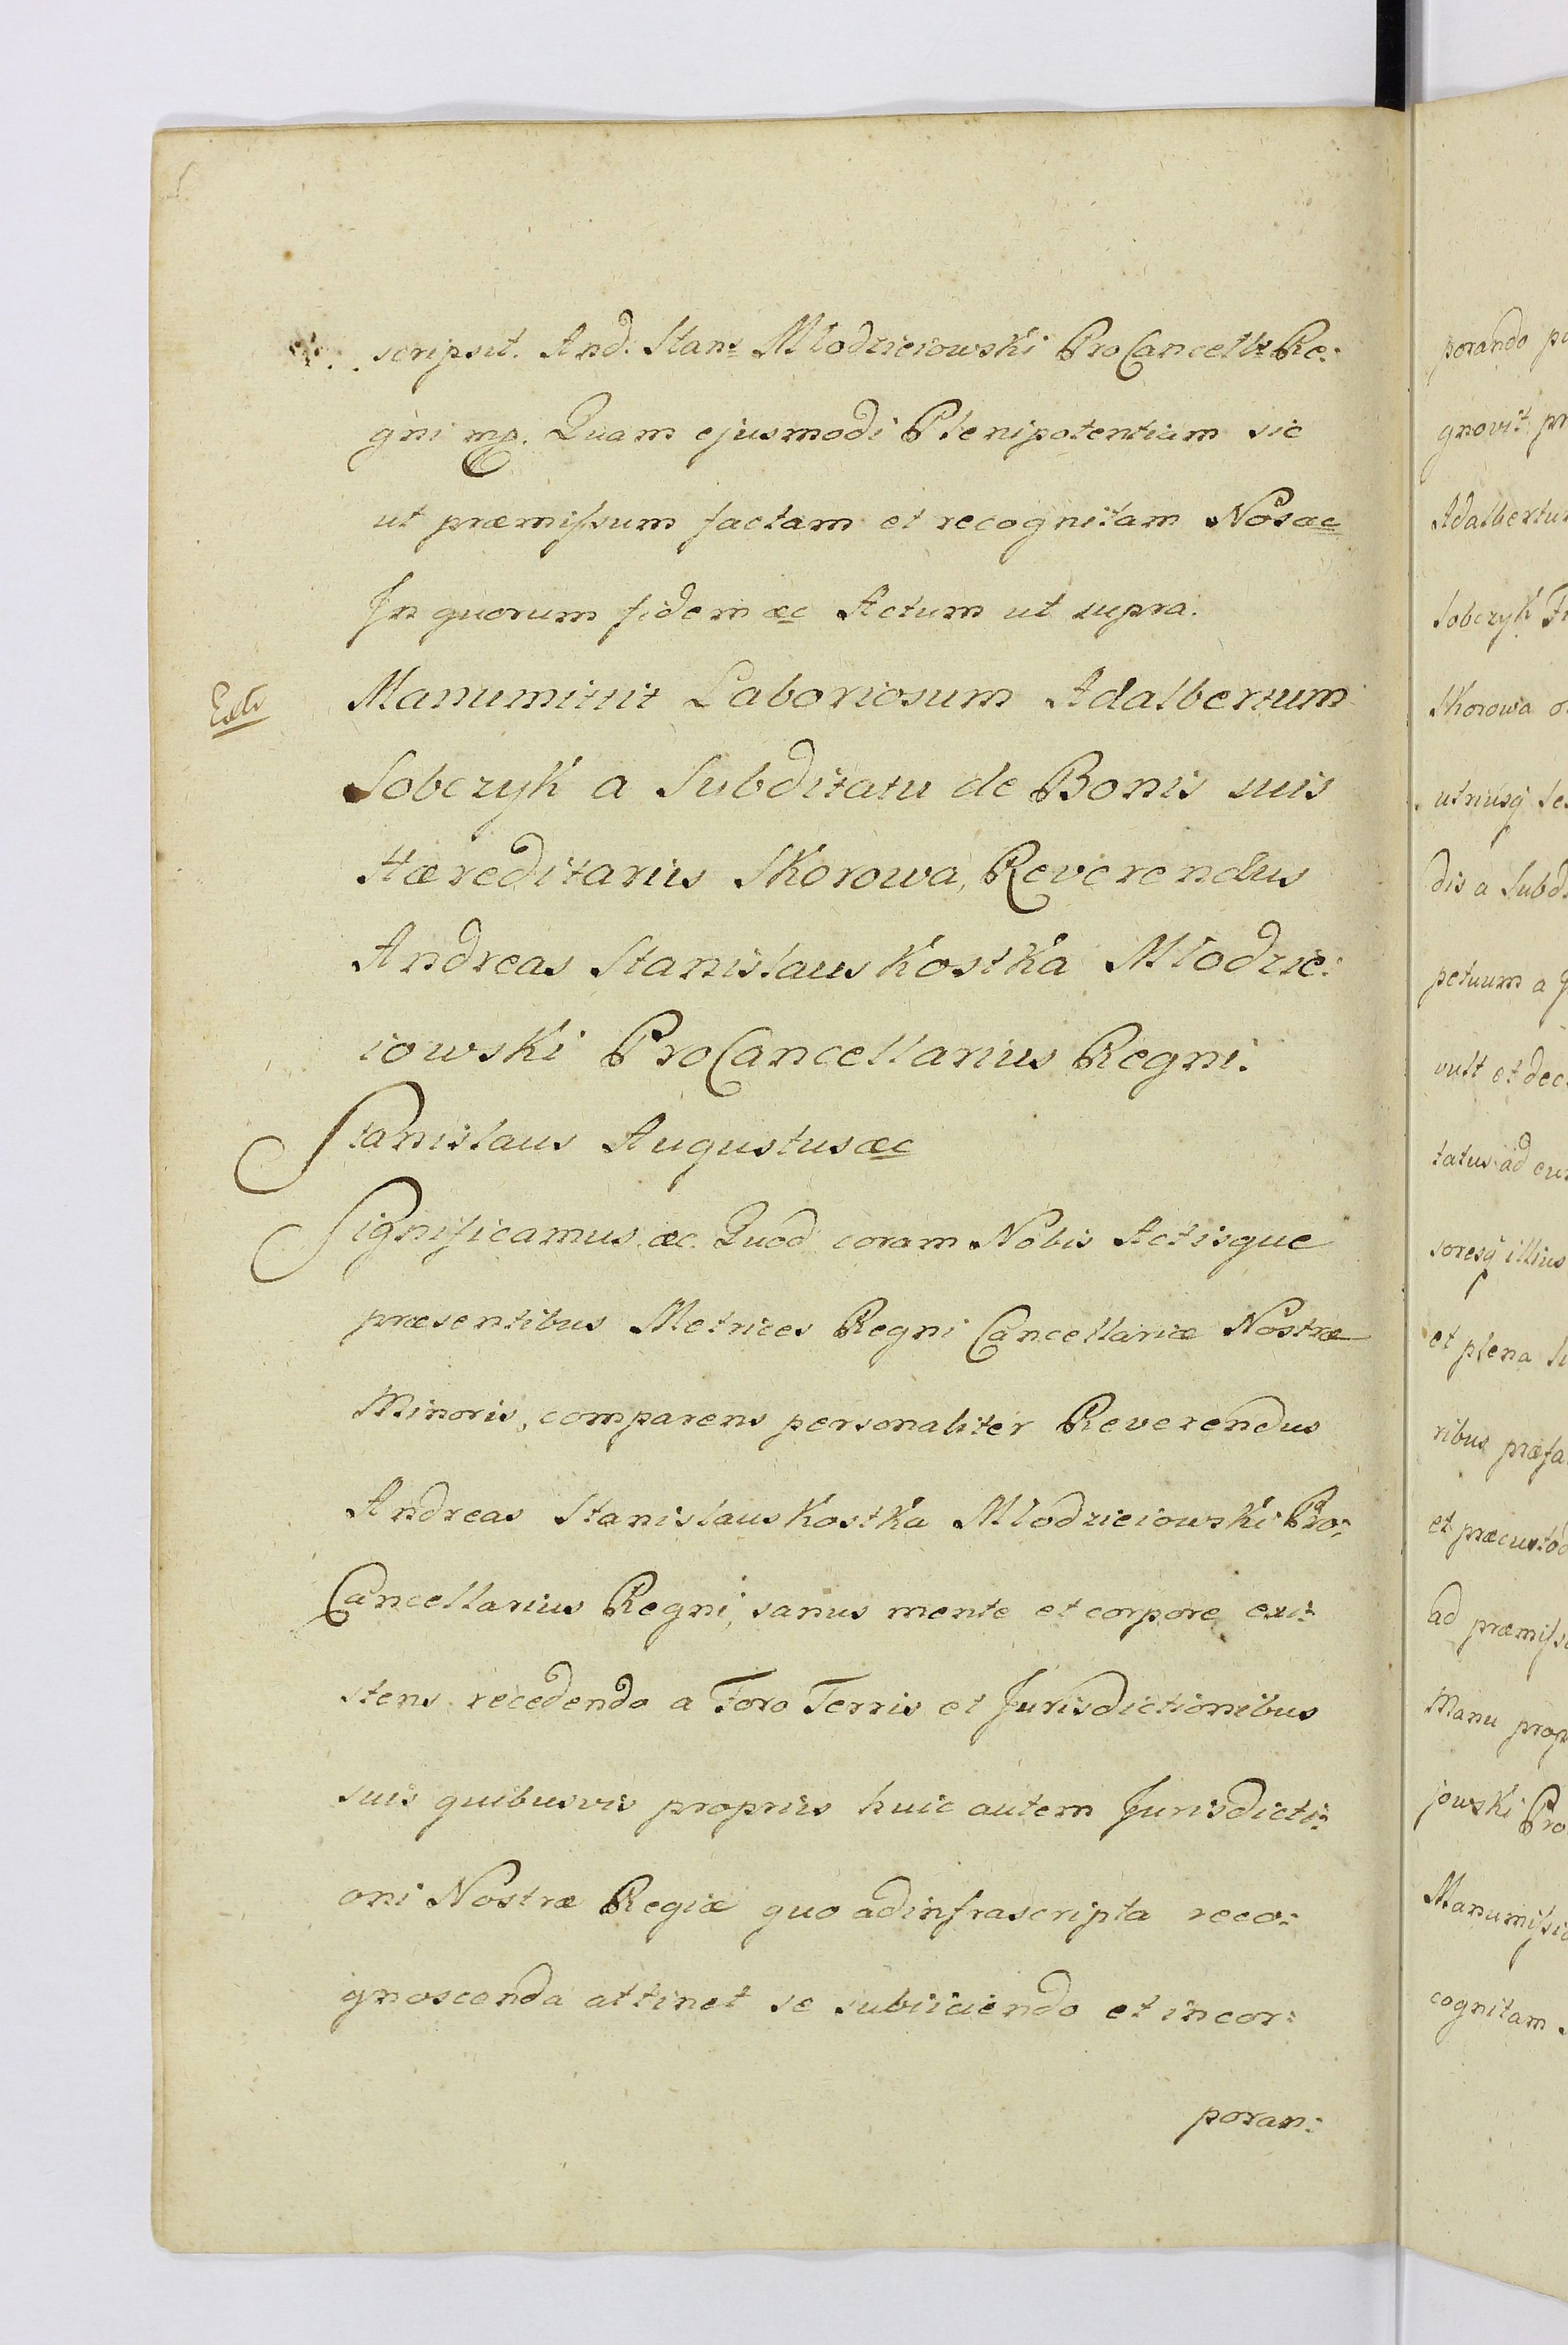 scripsit. And. Stans Młodzieiowski ProCancells Re:
gni mp. Quam ejusmodi Plenipotentiam sic
ut præmissum factam et recognitam Nos æc
In quorum fidem æc Actum ut supra.
Extr
Manumittit Laboriosum Adalbertum
Sobczyk a Subditatu de Bonis suis
Hæreditariis Skorowa, Reverendus
Andreas Stanislaus Kostka Młodzie:
iowski ProCancellarius Regni.
Stanislaus Augustus æc
Significamus æc. Quod coram Nobis Actisque
præsentibus Metrices Regni Cancellariæ Nostræ
Minoris, comparens personaliter Reverendus
Andreas Stanislaus Kostka Młodzieiowski Pro:
Cancellarius Regni, sanus mente et corpore exi:
stens recedendo a Foro Terris et Jurisdictionibus
suis quibusvis propriis huic autem Jurisdicti:
oni Nostræ Regiæ quo adinfrascripta reco:
gnoscenda attinet se subiiciendo et incor:
poran:
porando
gnovit
Adalbertum
Sobczyk
Skorowa
utriusq
dis a Subdi
petuum a
vult et dec
tatus ad
soresq illius
et plena
ribus præfa
et præcustod
ad præmisso
Manu prop
jowski Pro
Manumissio
cognitam